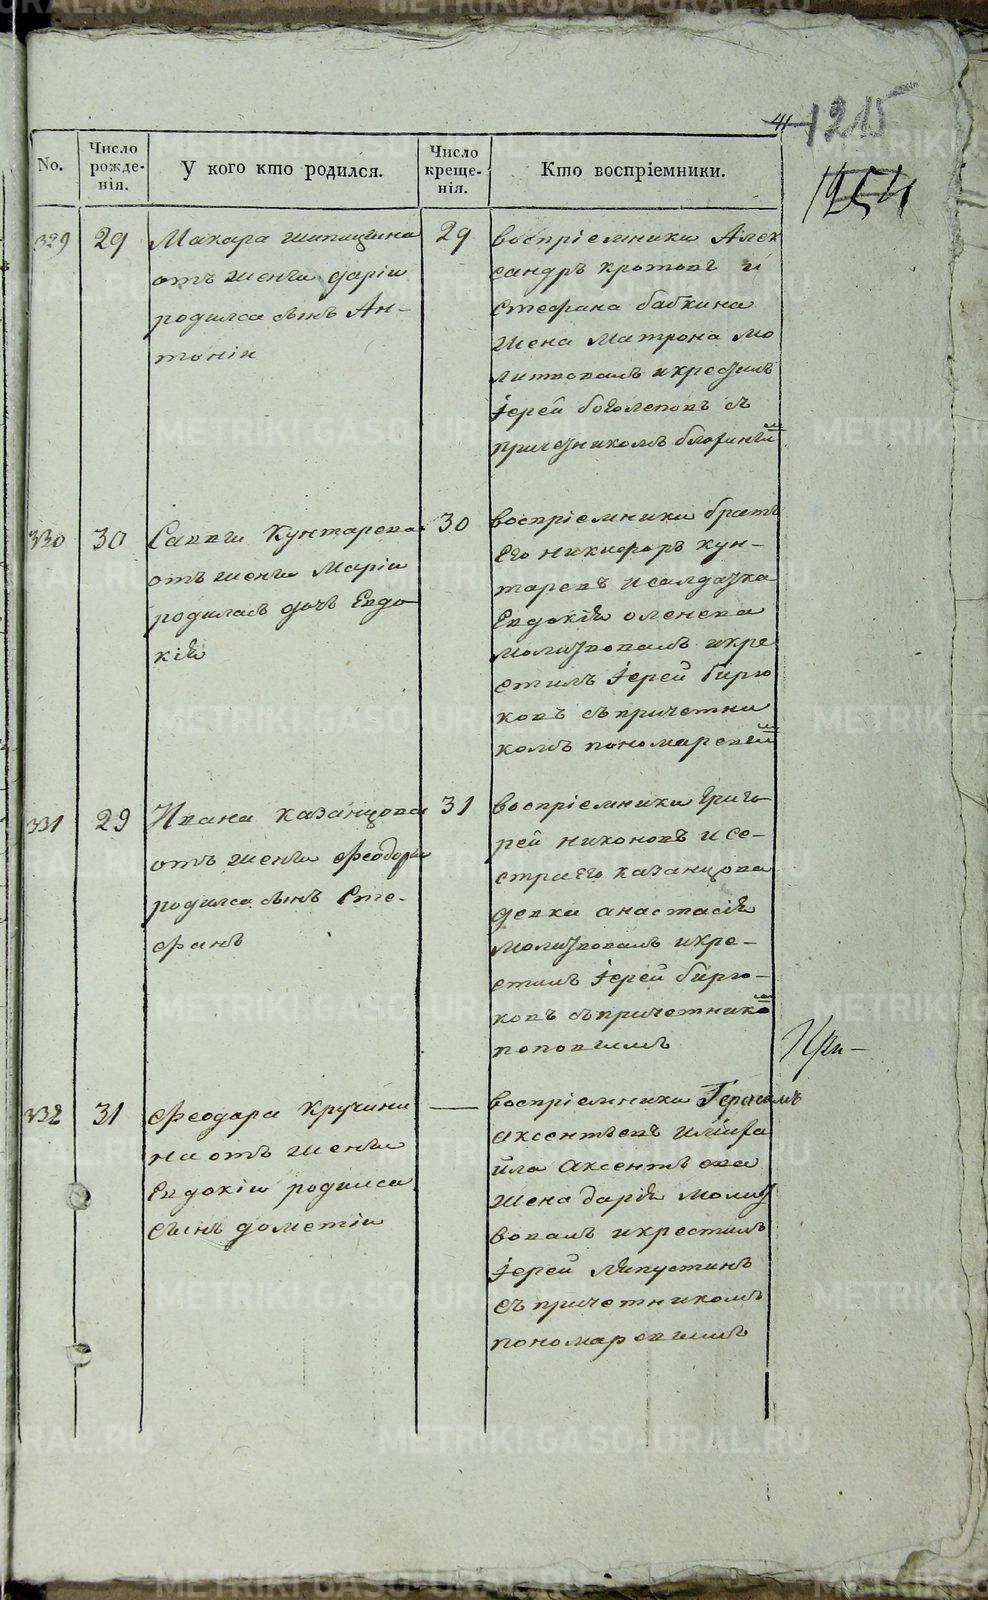 41
1215
1254
No.
Число рожде-нія.
У кого кто родился.
Число креще-нія.
Кто воспріемники.
329
29
Макара шипицина
отъ жены даріи
родился сынъ Ан-
тоніи
29
воспріемники Алек
сандръ кротовъ и
стефана бабкина
жена Матрона мо
литвовалъ и крестилъ
іерей боголеповъ съ
причетникомъ
330
30
Саввы Кунтарева
отъ жены Маріи
родилась дочь Евдо
кія
30
воспріемники братъ
Его никифоръ кун-
таревъ и салдатка
Евдокія оленева
молитвовалъ и кре
стилъ іерей бирю
ковъ съ причетни
комъ пономаревым
331
29
Ивана казанцова
отъ жены феодоры
родился сынъ Сте-
фанъ
31
воспріемники григо
рей никоновъ и се-
стра его казанцова
девка анастасія
молитвовалъ и кре-
стилъ іерей бирю-
ковъ съ причетнико
поповымъ
При-
332
31
феодора Кручини
на отъ жены
Евдокіи родился
сынъ дометіи
—
воспріемники Герасимъ
аксентьевъ и
ила аксентьева
жена дарія молит
вовалъ и крестилъ
іерей ляпустинъ
съ причетникомъ
пономаревымъ
METRIKI.GASO-URAL.RU